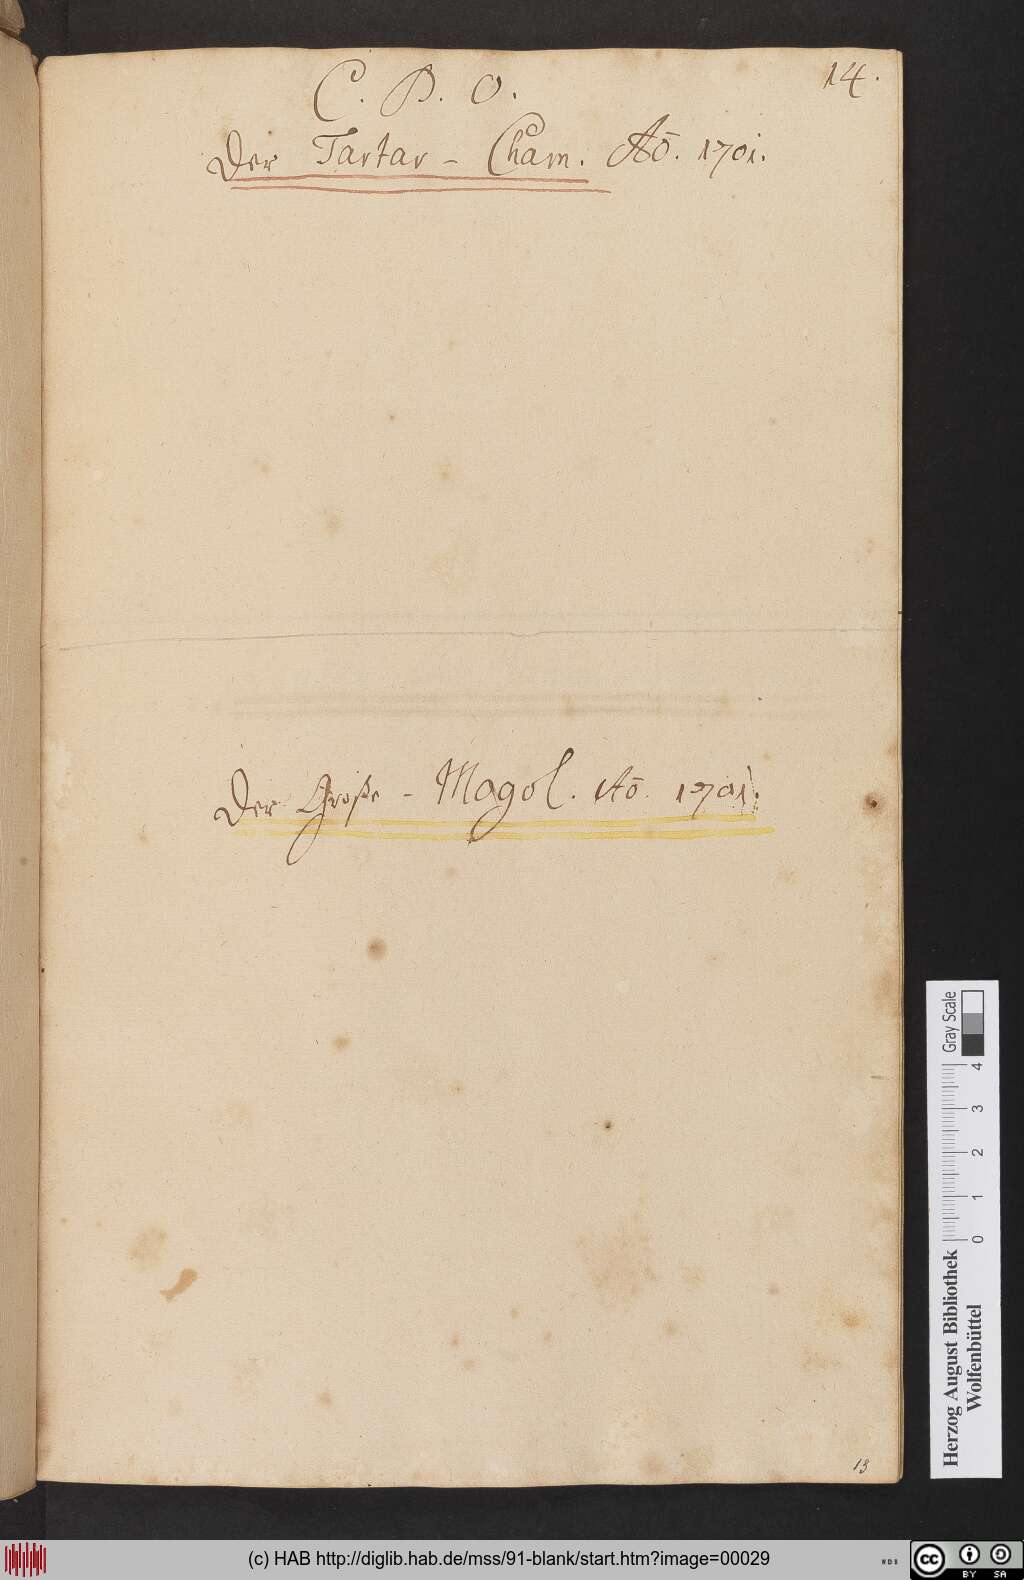 C. B. O.
14.
Der Tartar - Cham. Aō. 1701.
Der Große - Mogol. Aō. 1701.
13
Gray Scale
0 1 2 3 4
Herzog August Bibliothek
Wolfenbüttel
(c) HAB http://diglib.hab.de/mss/91-blank/start.htm?image=00029
WDB
cc
BY SA